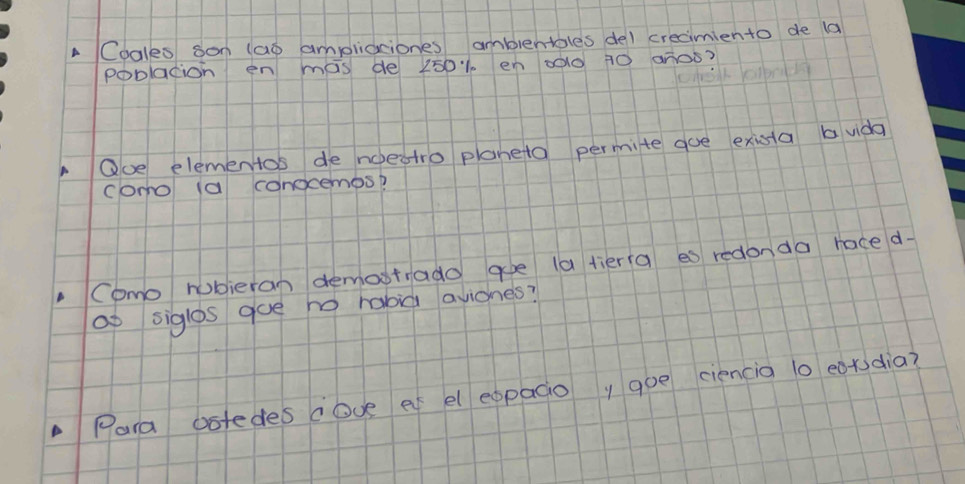 Cuales son las ampliaciones ambientales del crecimiento de la
población en más de 250% en solo 70 años?
Que elementos de nuestro planeta permite que exista la vida
como la conocemos?
Como hubieran demostrado que la tierra es redonda hace d-
os siglos que no habia aviones?
Para ustedes ¿Que es el espacio y que ciencia lo estudia?